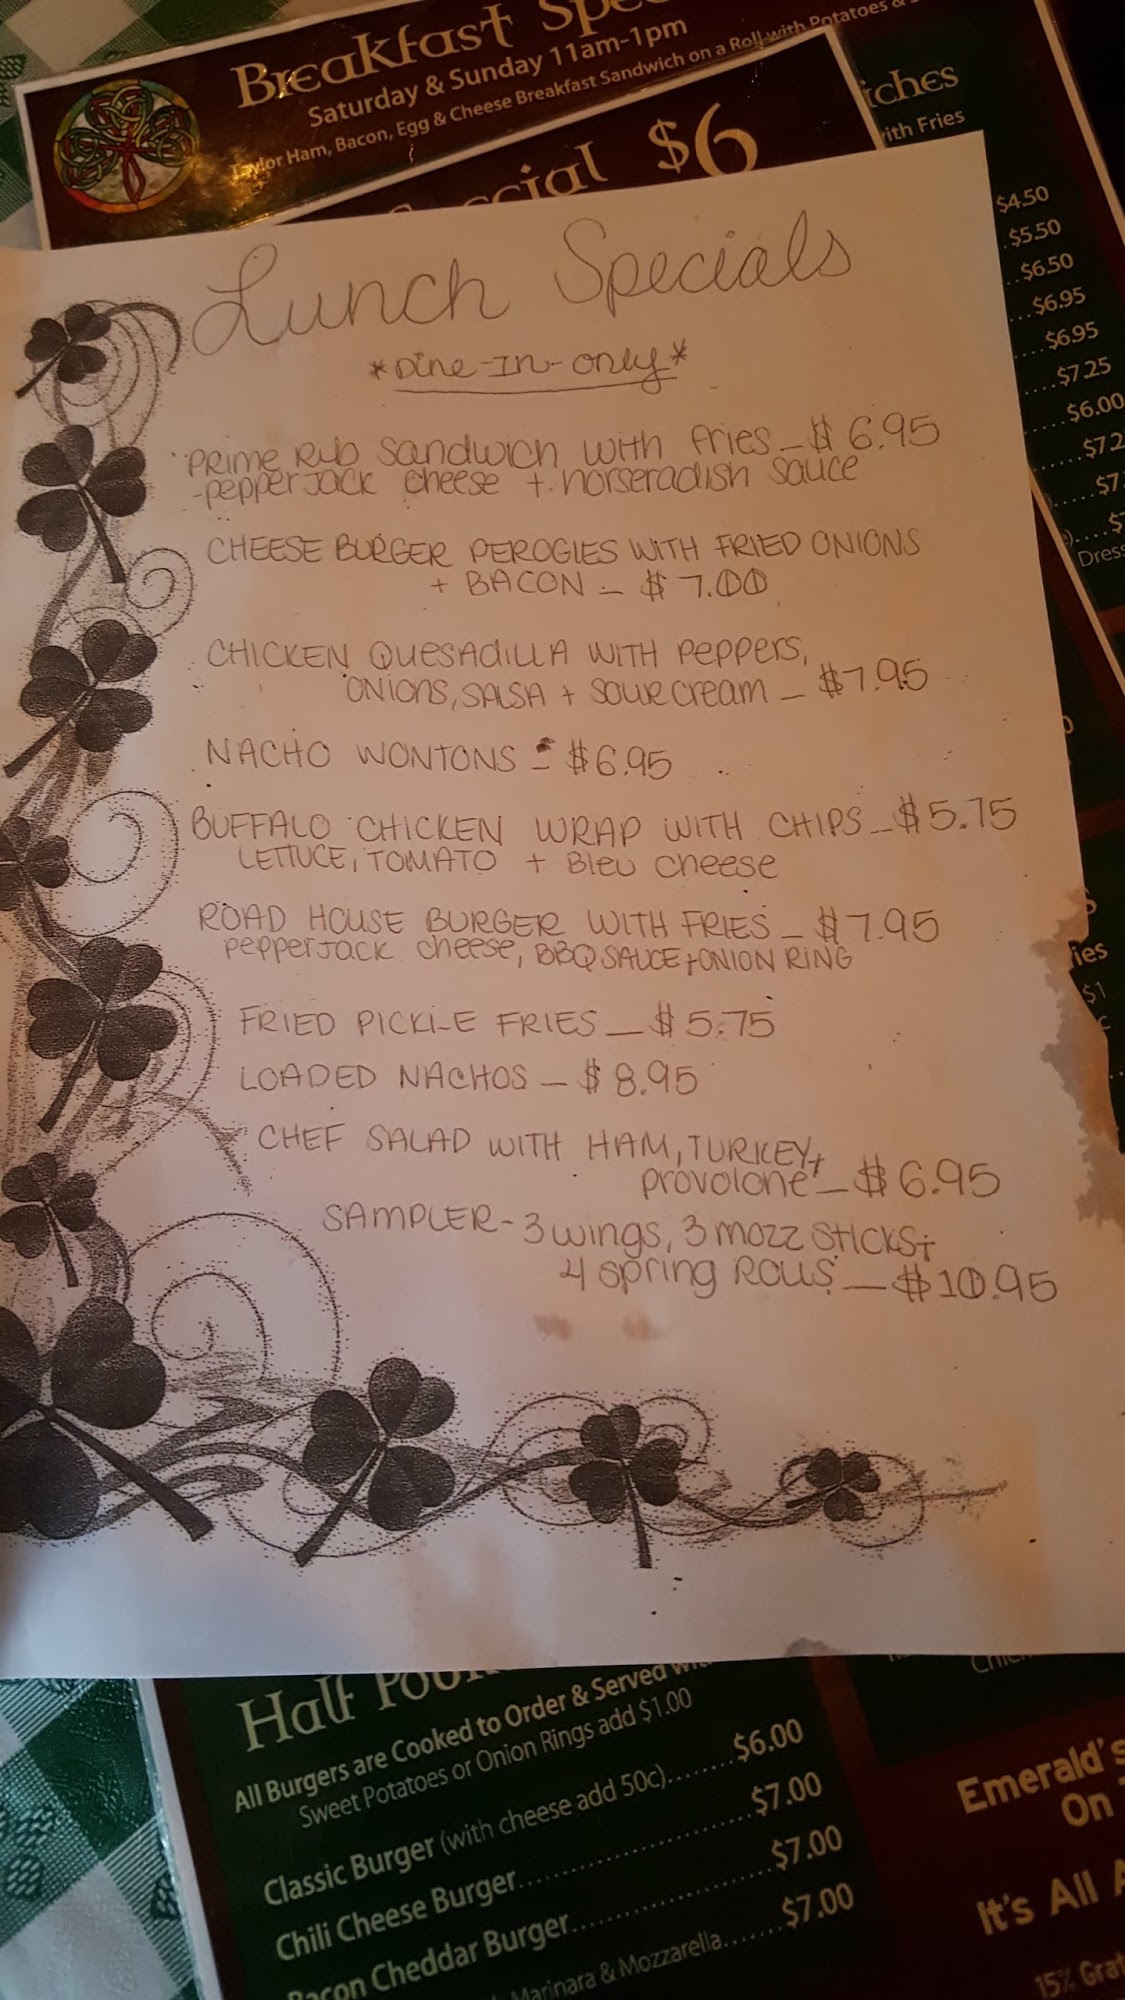 Breakfast
Saturday & Sunday 11am-1pm
Taylor Ham, Bacon, Egg & Cheese Breakfast Sandwich on a Roll with Potatoes &
$6
with Fries
$4.50
$5.50
$6.50
$6.95
$6.95
$7.25
$6.00
Lunch Specials
*Dine-In-only*
Prime Rib Sandwich with fries - $6.95
-pepperjack cheese + horseradish sauce
CHEESE BURGER PEROGIES WITH FRIED ONIONS
+ BACON - $7.00
CHICKEN QUESADILLA WITH PEPPERS,
ONIONS, SALSA + SOUR CREAM - $7.95
NACHO WONTONS - $6.95
BUFFALO CHICKEN WRAP WITH CHIPS - $5.75
LETTUCE, TOMATO + Bleu cheese
ROAD HOUSE BURGER WITH FRIES - $7.95
pepperjack cheese, BBQ SAUCE + ONION RING
FRIED PICKLE FRIES - $5.75
LOADED NACHOS - $8.95
CHEF SALAD WITH HAM, TURKEY +
provolone - $6.95
SAMPLER - 3 wings, 3 mozz STICKS +
4 spring ROLLS - $10.95
Half
All Burgers are Cooked to Order & Served
Sweet Potatoes or Onion Rings add $1.00
Classic Burger (with cheese add 50c)........$6.00
Chili Cheese Burger........$7.00
Bacon Cheddar Burger........$7.00
Marinara & Mozzarella........$7.00
Emerald's
On
It's All
15%